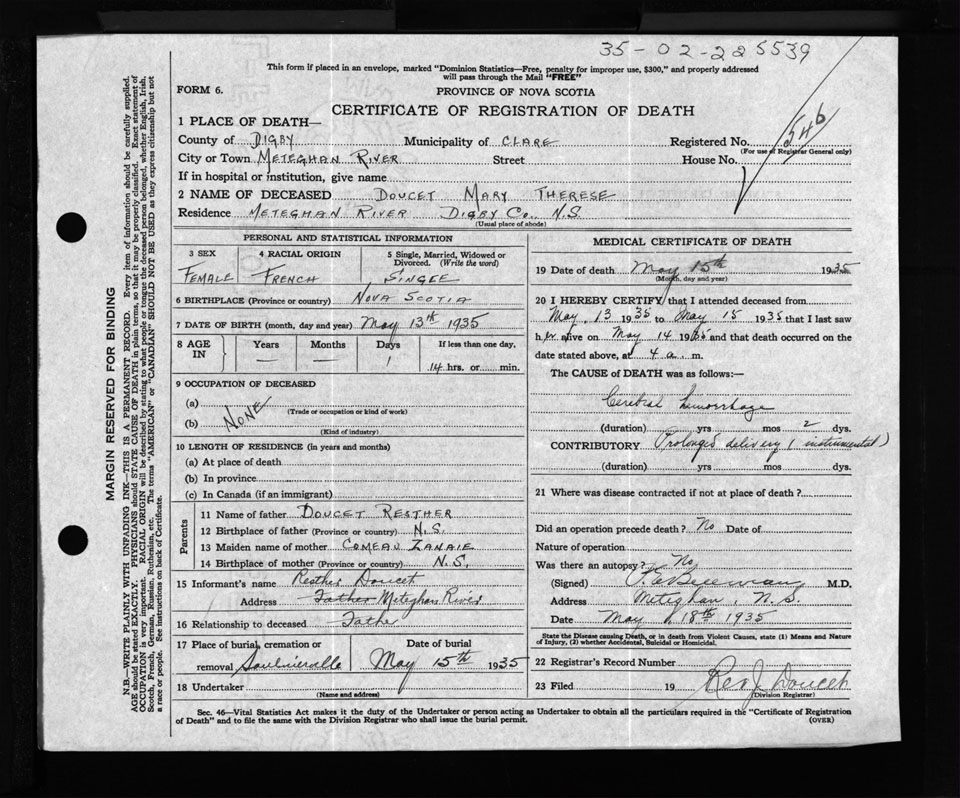 35-02-225539
This form if placed in an envelope, marked "Dominion Statistics—Free, penalty for improper use, $300," and properly addressed
will pass through the Mail "FREE"
FORM 6.
PROVINCE OF NOVA SCOTIA
CERTIFICATE OF REGISTRATION OF DEATH
546
1 PLACE OF DEATH—
County of DIGBY Municipality of CLARE Registered No.
(For use of Registrar General only)
City or Town METEGHAN RIVER Street House No.
If in hospital or institution, give name
2 NAME OF DECEASED DOUCET MARY THERESE
Residence METEGHAN RIVER DIGBY Co., N.S.
(Usual place of abode)
MARGIN RESERVED FOR BINDING
N.B.—WRITE PLAINLY WITH UNFADING INK—THIS IS A PERMANENT RECORD. Every item of information should be carefully supplied.
AGE should be stated EXACTLY. PHYSICIANS should STATE CAUSE OF DEATH in plain terms, so that it may be properly classified. Exact statement of
OCCUPATION is very important. RACIAL ORIGIN will be described by stating to what people or tongue the deceased person belonged, whether English, Irish,
Scotch, French, German, Russian, Ruthenian, etc. The terms "AMERICAN" or "CANADIAN" SHOULD NOT BE USED as they express citizenship but not
a race or people. See instructions on back of Certificate.
PERSONAL AND STATISTICAL INFORMATION
3 SEX 4 RACIAL ORIGIN 5 Single, Married, Widowed or
Divorced. (Write the word)
FEMALE FRENCH SINGLE
6 BIRTHPLACE (Province or country) NOVA SCOTIA
7 DATE OF BIRTH (month, day and year) May 13th 1935
8 AGE IN Years Months Days If less than one day,
1 14 hrs. or min.
9 OCCUPATION OF DECEASED
(a) NONE
(Trade or occupation or kind of work)
(b)
(Kind of industry)
10 LENGTH OF RESIDENCE (in years and months)
(a) At place of death
(b) In province
(c) In Canada (if an immigrant)
Parents
11 Name of father DOUCET RESTHER
12 Birthplace of father (Province or country) N.S.
13 Maiden name of mother COMEAU ZANAIE
14 Birthplace of mother (Province or country) N.S.
15 Informant's name Resther Doucet
Address Father Meteghan River
16 Relationship to deceased Father
17 Place of burial, cremation or Date of burial
removal May 15th 1935
18 Undertaker
(Name and address)
MEDICAL CERTIFICATE OF DEATH
19 Date of death May 15th 1935
(Month, day and year)
20 I HEREBY CERTIFY that I attended deceased from
May 13 1935 to May 15 1935 that I last saw
her alive on May 14 1935 and that death occurred on the
date stated above, at 4 a. m.
The CAUSE of DEATH was as follows:—
Cerebral hemorrhage
(duration) yrs mos 2 dys.
CONTRIBUTORY Prolonged delivery (instrumental)
(duration) yrs mos dys.
21 Where was disease contracted if not at place of death?
Did an operation precede death? No Date of
Nature of operation
Was there an autopsy? No
(Signed) M.D.
Address Meteghan, N.S.
Date May 18th 1935
State the Disease causing Death, or in death from Violent Causes, state (1) Means and Nature
of Injury, (2) whether Accidental, Suicidal or Homicidal.
22 Registrar's Record Number
23 Filed 19 Rev J Doucet
(Division Registrar)
Sec. 46—Vital Statistics Act makes it the duty of the Undertaker or person acting as Undertaker to obtain all the particulars required in the "Certificate of Registration
of Death" and to file the same with the Division Registrar who shall issue the burial permit.
(OVER)